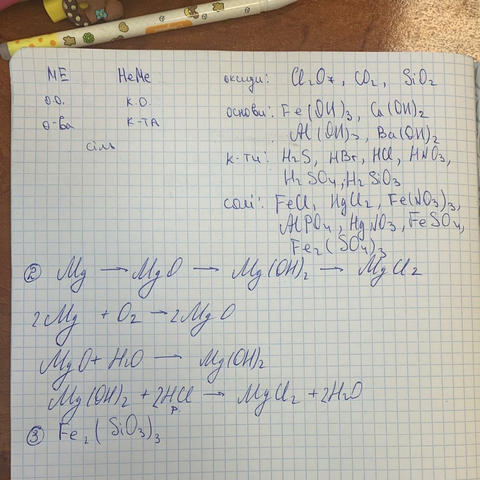 МЕ НеМе оксиди: Cl₂O₇, CO₂, SiO₂
о.о. к.о. основи: Fe(OH)₃, Ca(OH)₂
о-ва к-та Al(OH)₃, Ba(OH)₂
сіль к-ти: H₂S, HBr, HCl, HNO₃,
H₂SO₄, H₂SiO₃
солі: FeCl, HgCl₂, Fe(NO₃)₃,
AlPO₄, HgNO₃, FeSO₄,
Fe₂(SO₄)₃
② Mg → MgO → Mg(OH)₂ → MgCl₂
2Mg + O₂ → 2MgO
MgO + H₂O → Mg(OH)₂
Mg(OH)₂ + 2HCl → MgCl₂ + 2H₂O
р.
③ Fe₂(SiO₃)₃